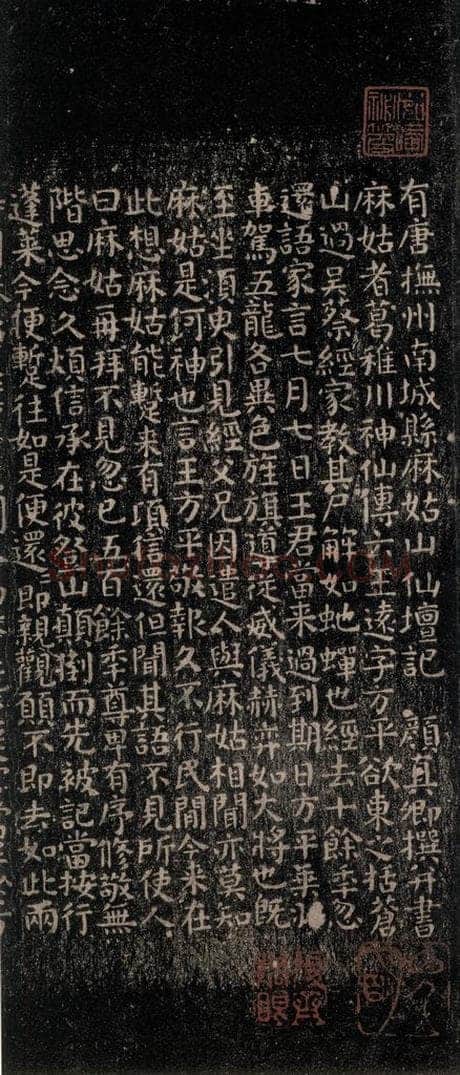 有唐撫州南城縣麻姑山仙壇記 顏真卿撰并書
麻姑者葛稚川神仙傳云王遠字方平欲東之括蒼
山過吳蔡經家教其尸解如虵蟬也經去十餘秊忽
還語家言七月七日王君當來過到期日方平乘羽
車駕五龍各異色旌旗導從威儀赫弈如大將也既
至坐須臾引見經父兄因遣人與麻姑相聞亦莫知
麻姑是何神也言王方平敬報久不行民間今来在
此想麻姑能蹔来有頃信還但聞其語不見所使人
曰麻姑再拜不見忽已五百餘秊尊卑有序修敬無
階思念久煩信承在彼登山顛倒而先被記當按行
蓬萊今便蹔往如是便還即親觀願不即去如此兩